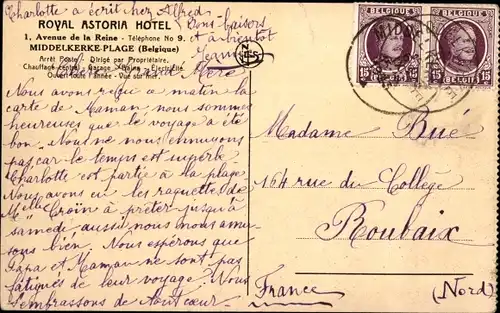 Charlotte a écrit chez Alfred
Bons baisers
et à bientôt
Jeanne
ROYAL ASTORIA HOTEL
1, Avenue de la Reine - Téléphone No 9.
MIDDELKERKE-PLAGE (Belgique)
Arrêt Poste - Dirigé par Propriétaire.
Chauffage central - Garage - Bains - Electricité
Ouvert toute l'année - Vue sur mer.
Mère
Nous avons reçu ce matin la
carte de Maman nous sommes
heureuses que le voyage a été
bon. Nous ne nous ennuyons
pas car le temps est superbe
Charlotte est partie à la plage
Nous avons eu les raquettes de
Melle Croïn à prêter jusqu'à
samedi aussi nous nous amu-
sons bien. Nous espérons que
Papa et Maman ne sont pas
fatigués de leur voyage. Nous
t'embrassons de tout cœur.
NELS
BELGIQUE BELGIQUE
15 15 15 15
BELGIË BELGIË
Madame Bué
164 rue du Collège
Roubaix
France (Nord)